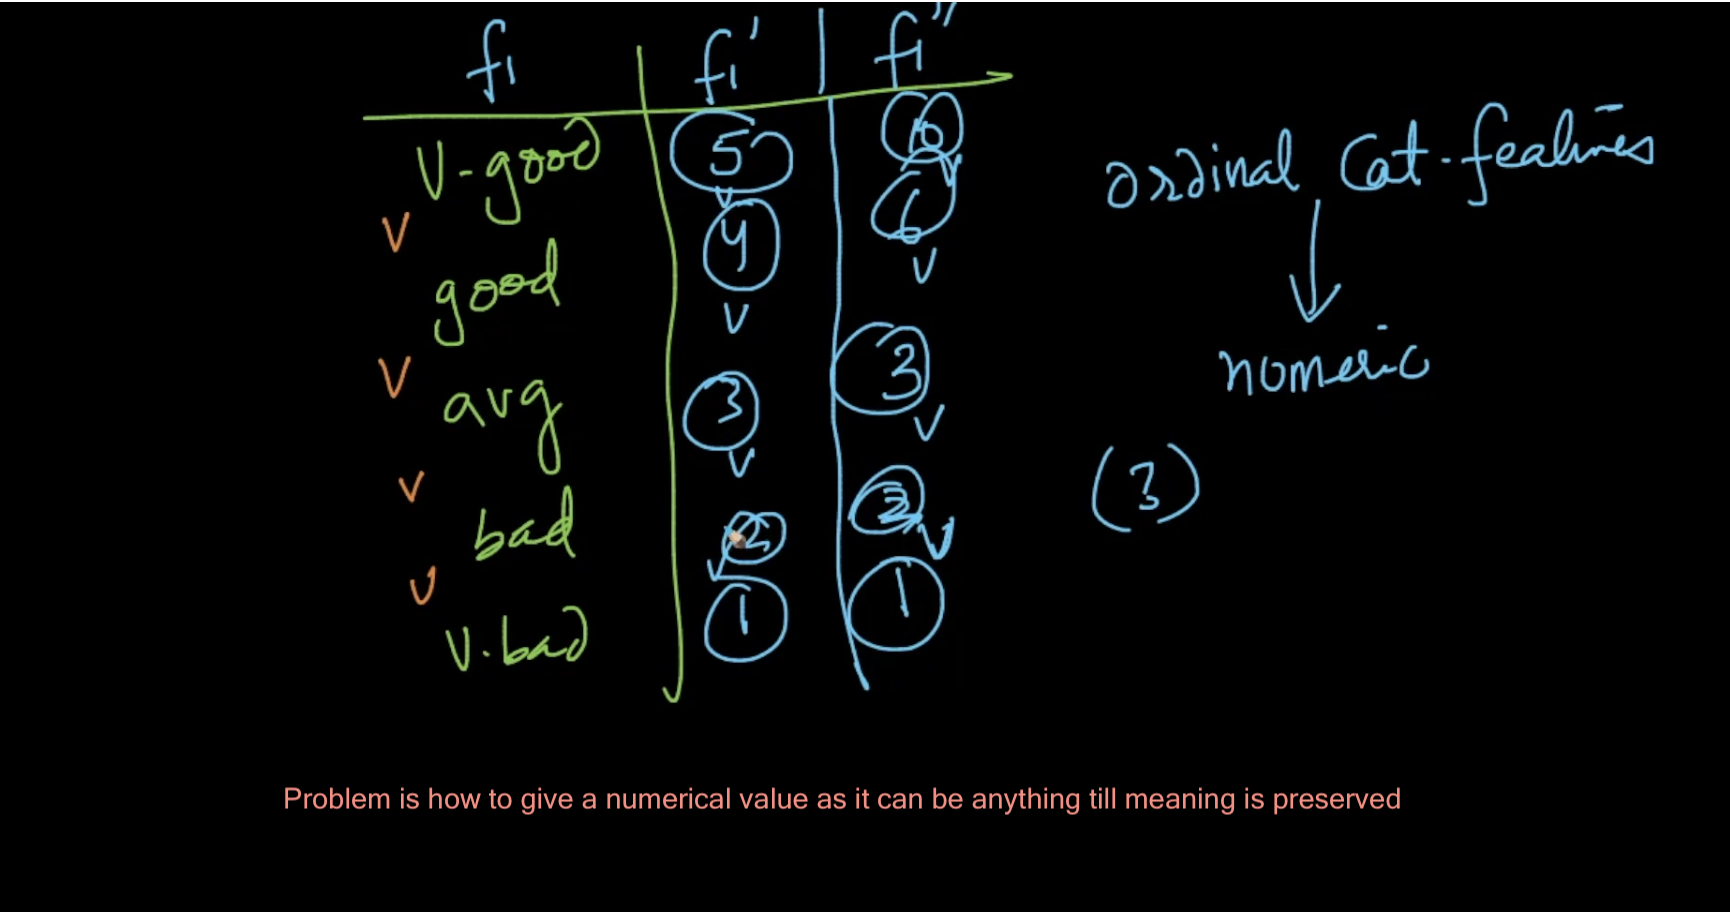 f1 f1' f1''
V-good 5 10
v v v
good 4 6
v v v
avg 3 3
v v v
bad 2 2
v v v
v.bad 1 1
ordinal Cat-features
numeric
(3)
Problem is how to give a numerical value as it can be anything till meaning is preserved